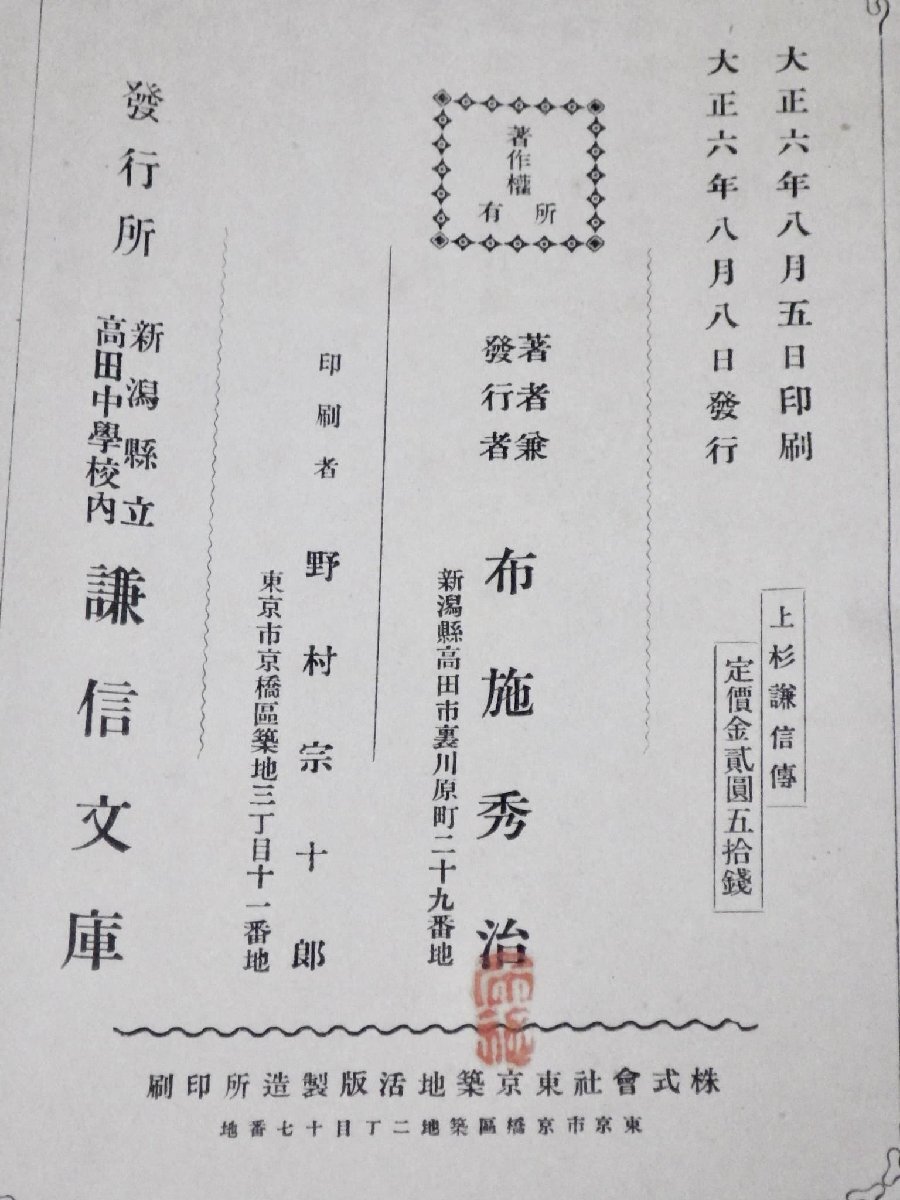 大正六年八月五日印刷
大正六年八月八日發行
上杉謙信傳
定價金貳圓五拾錢
著作權
所有
著者兼
發行者
布施秀治
新潟縣高田市裏川原町二十九番地
印刷者
野村宗十郎
東京市京橋區築地三丁目十一番地
發行所
新潟縣立
高田中學校內
謙信文庫
株式會社東京築地活版製造所印刷
東京市京橋區築地二丁目十七番地